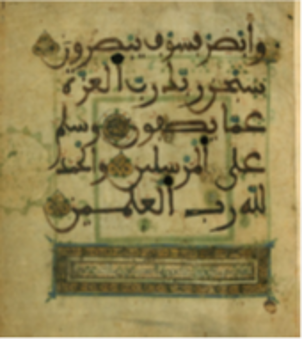 وأبصر فسوف يبصرون
سبحن ربك رب العزة
عما يصفون وسلم
على المرسلين والحمد
لله رب العلمين